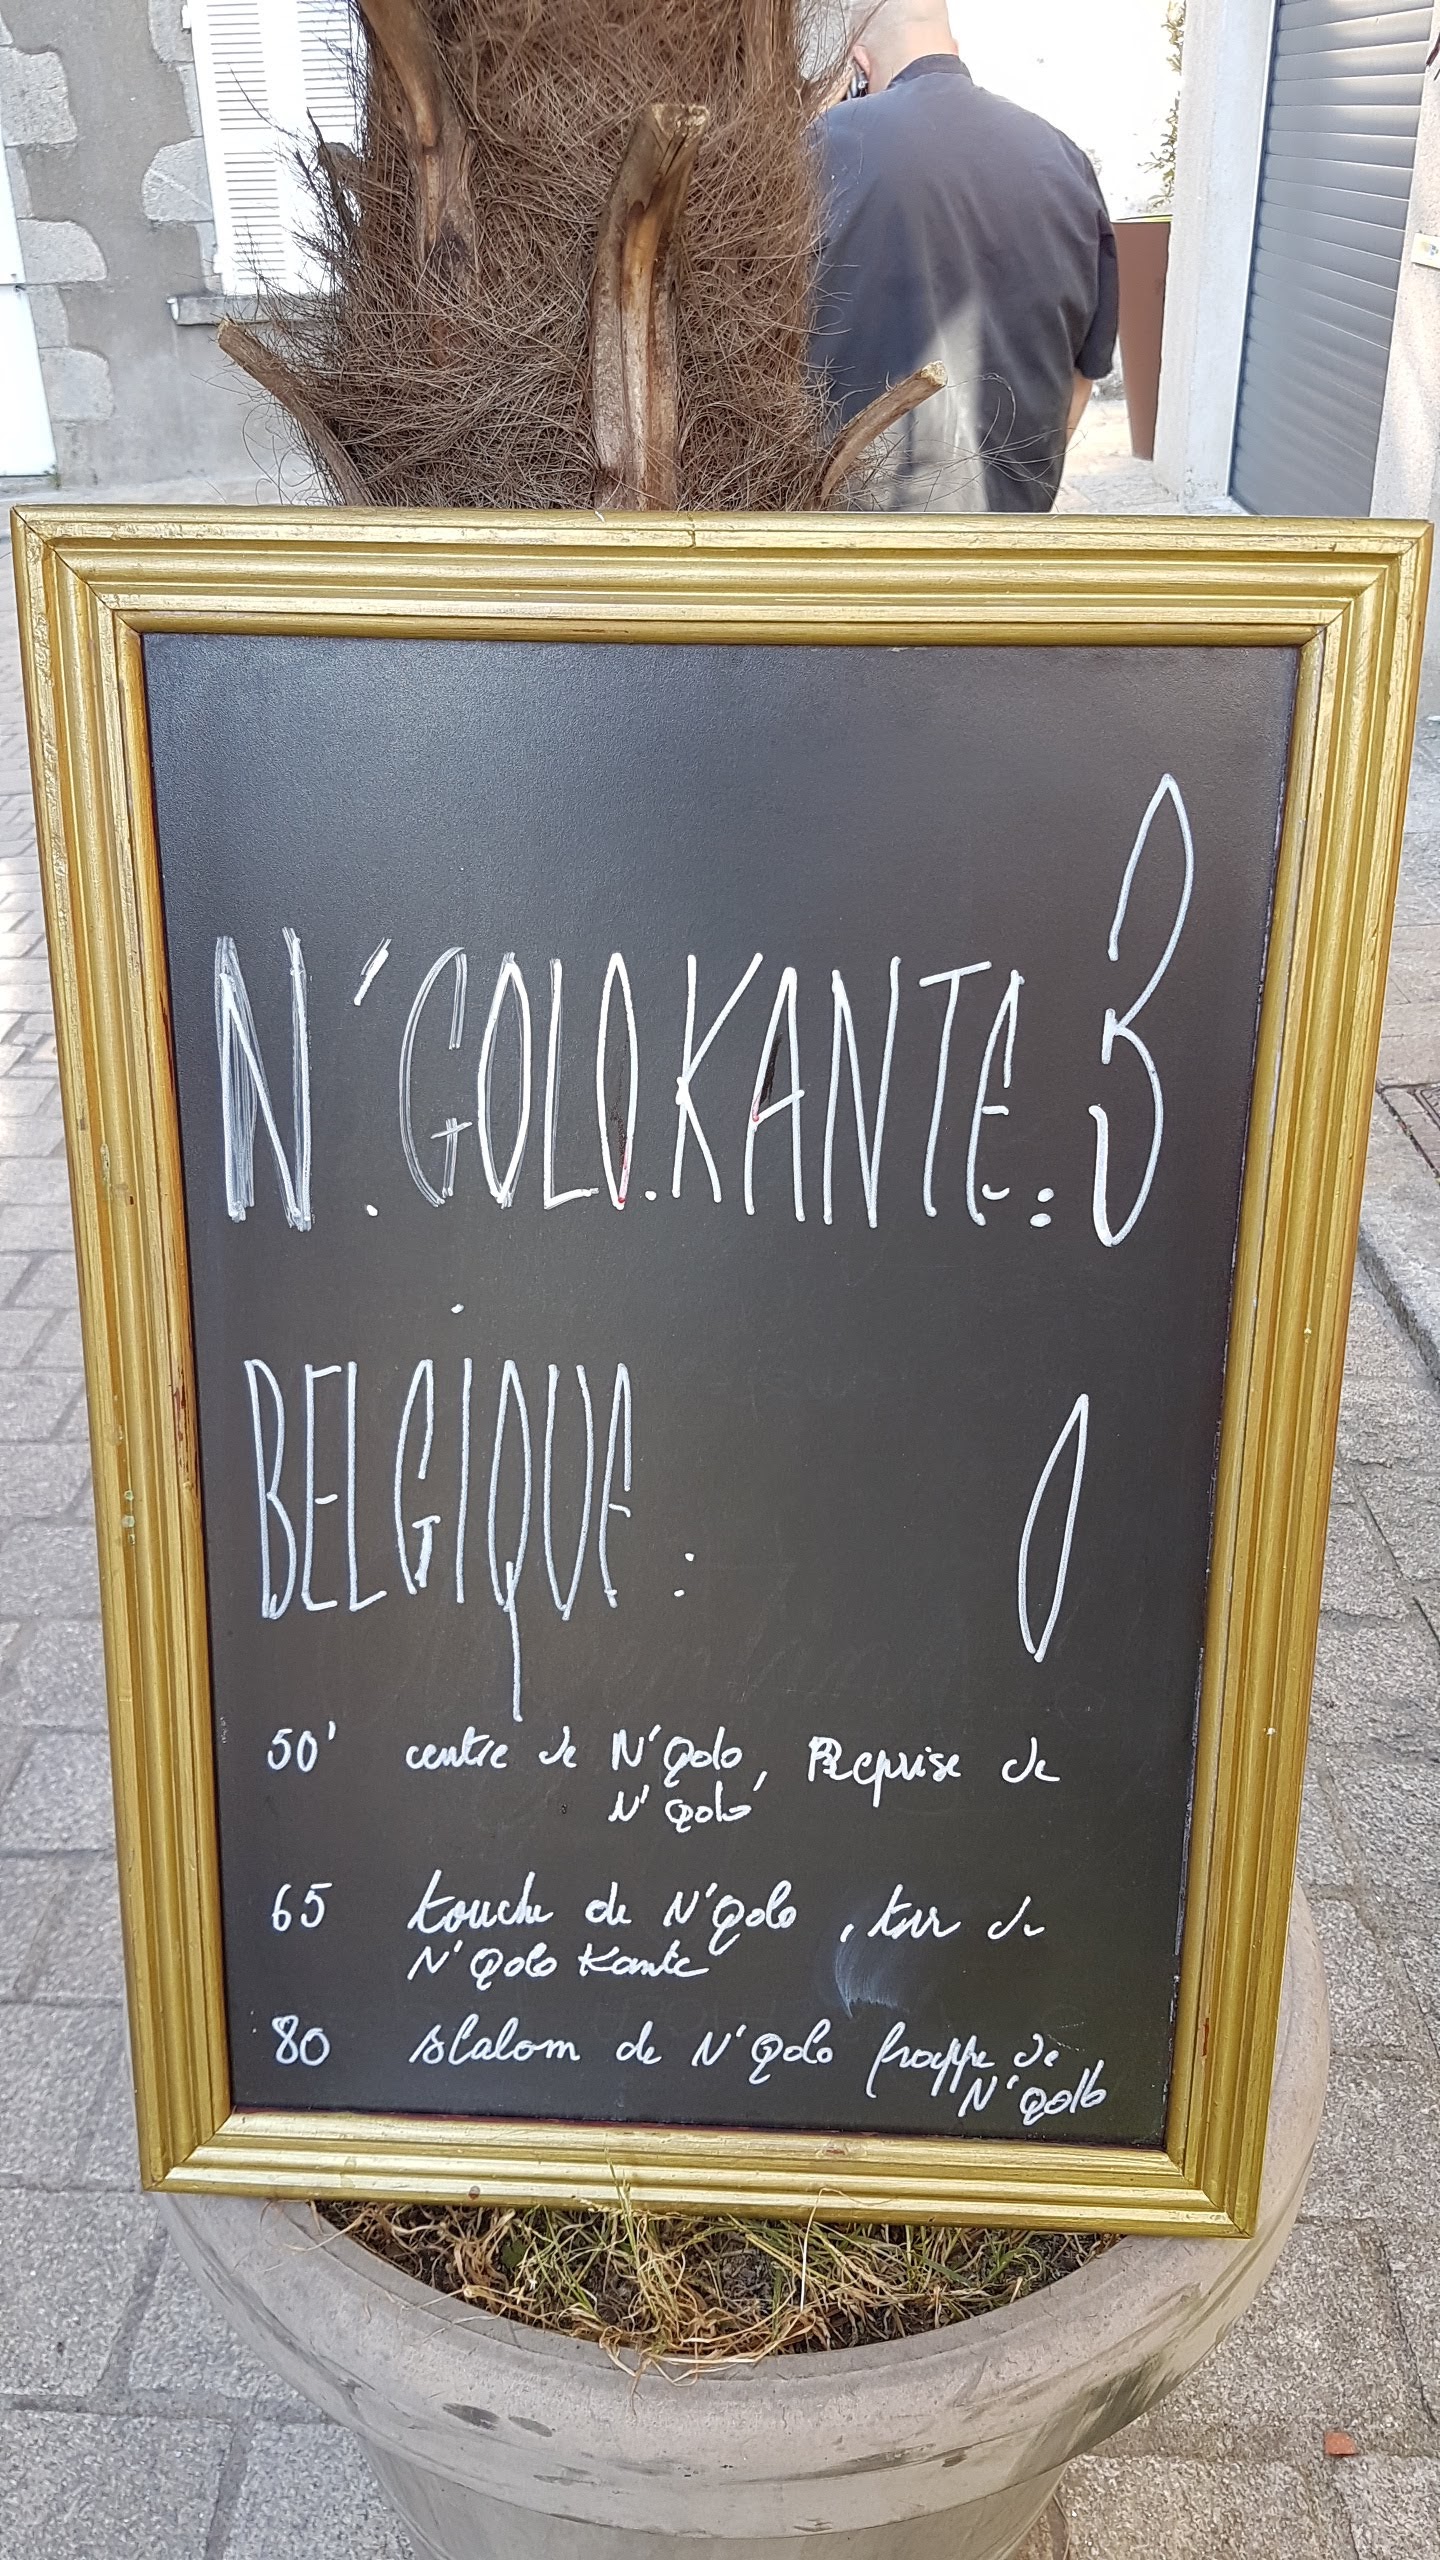 N'.GOLO.KANTE: 3
BELGIQUE: 0
50' centre de N'Golo, Reprise de
N'Golo
65 touche de N'Golo, tir de
N'Golo Kante
80 slalom de N'Golo frappe de
N'Golo